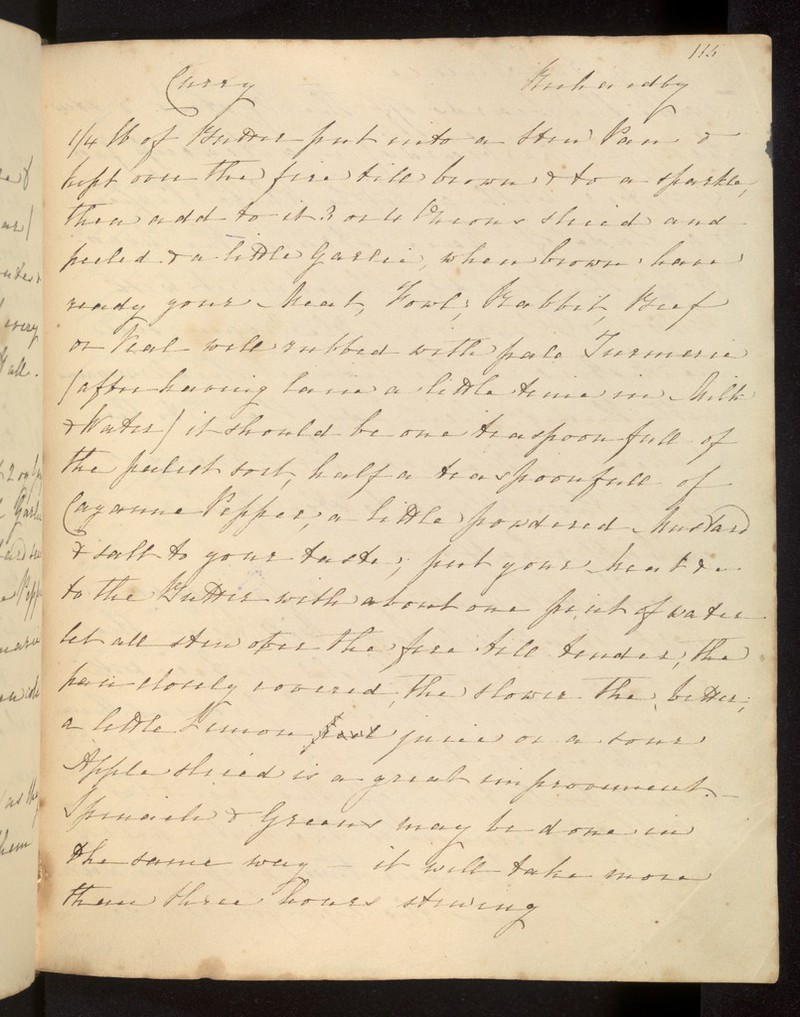 115
Curry
1/4 lb of Butter put into a Stew Pan &
kept over the fire till brown & to a sparkle,
then add to it 3 or 4 Onions sliced and
peeled & a little Garlic, when brown have
ready your Meat, Fowl, Rabbit, Beef
or Veal well rubbed with pale Turmeric
(after having lain a little time in Milk
& Water) it should be one teaspoonfull of
the palest sort, half a teaspoonfull of
Cayanne Pepper, a little powdered Mustard
& salt to your taste; put your heat &c
to the Butter with about one pint of water
let all stew over the fire till tender, the
pan closely covered, the slower the better;
a little Lemon juice or a sour
Apple sliced is a great improvement.
Spinach & Greens may be done in
the same way – it will take more
than three hours stewing